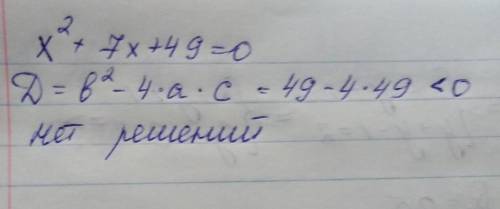 x² + 7x + 49 = 0
D = b² - 4·a·c = 49 - 4·49 < 0
нет решений